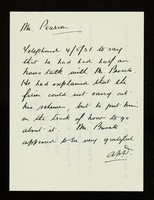 Mr. Pearson
Telephoned 4/5/31 to say
that he had had half an
hours talk with Mr.
He had explained that the
firm could not carry out
his scheme, but he put him
on the track of how to go
about it. Mr.
appeared to be very grateful